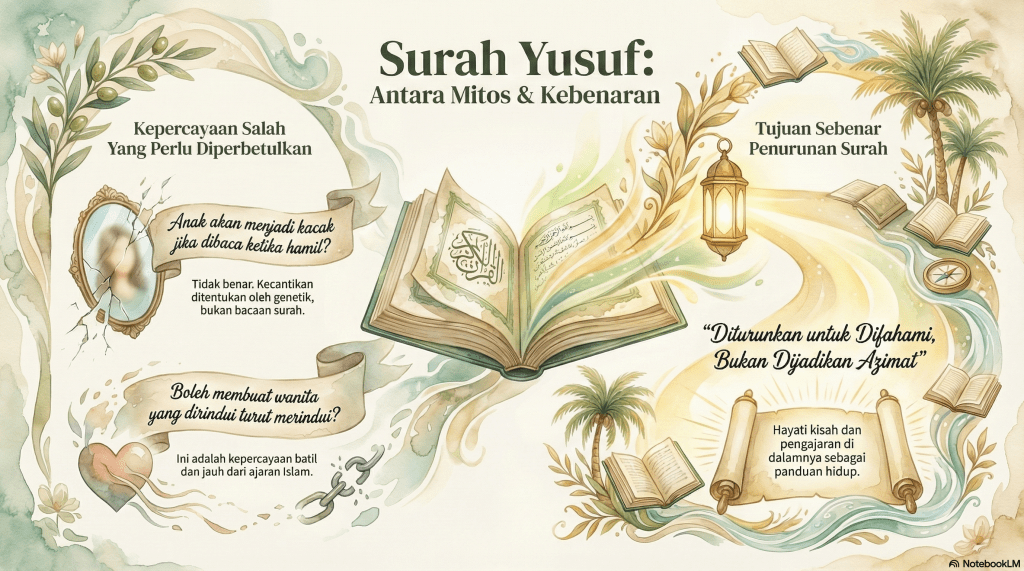 Surah Yusuf:
Antara Mitos & Kebenaran
Kepercayaan Salah
Yang Perlu Diperbetulkan
Anak akan menjadi kacak
jika dibaca ketika hamil?
Tidak benar. Kecantikan
ditentukan oleh genetik,
bukan bacaan surah.
Boleh membuat wanita
yang dirindui turut merindui?
Ini adalah kepercayaan batil
dan jauh dari ajaran Islam.
Tujuan Sebenar
Penurunan Surah
“Diturunkan untuk Difahami,
Bukan Dijadikan Azimat”
Hayati kisah dan
pengajaran di
dalamnya sebagai
panduan hidup.
NotebookLM